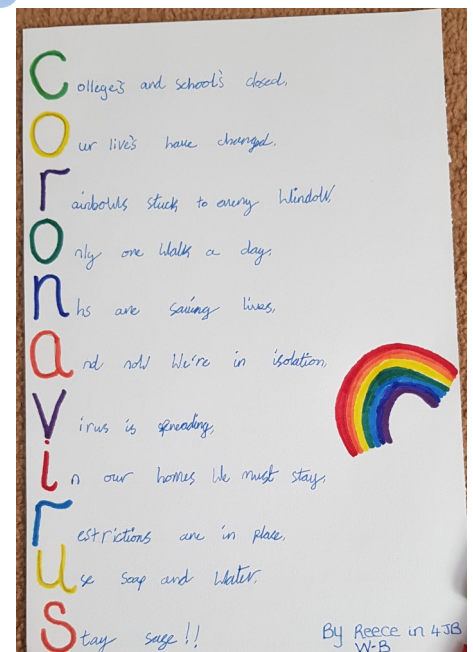 College's and school's closed,
Our live's have changed,
rainbows stuck to every window,
only one walk a day,
nhs are saving lives,
and now we're in isolation,
Virus is spreading,
in our homes we must stay,
restrictions are in place,
use soap and water,
Stay sage!!
By Reece in 4JB
W-B